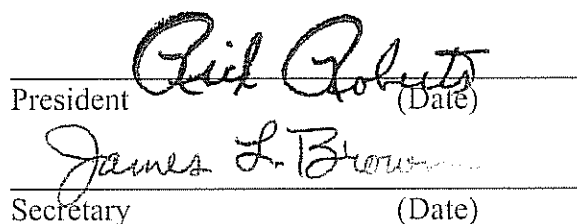 Rich Roberts
President (Date)
James L. Brown
Secretary (Date)